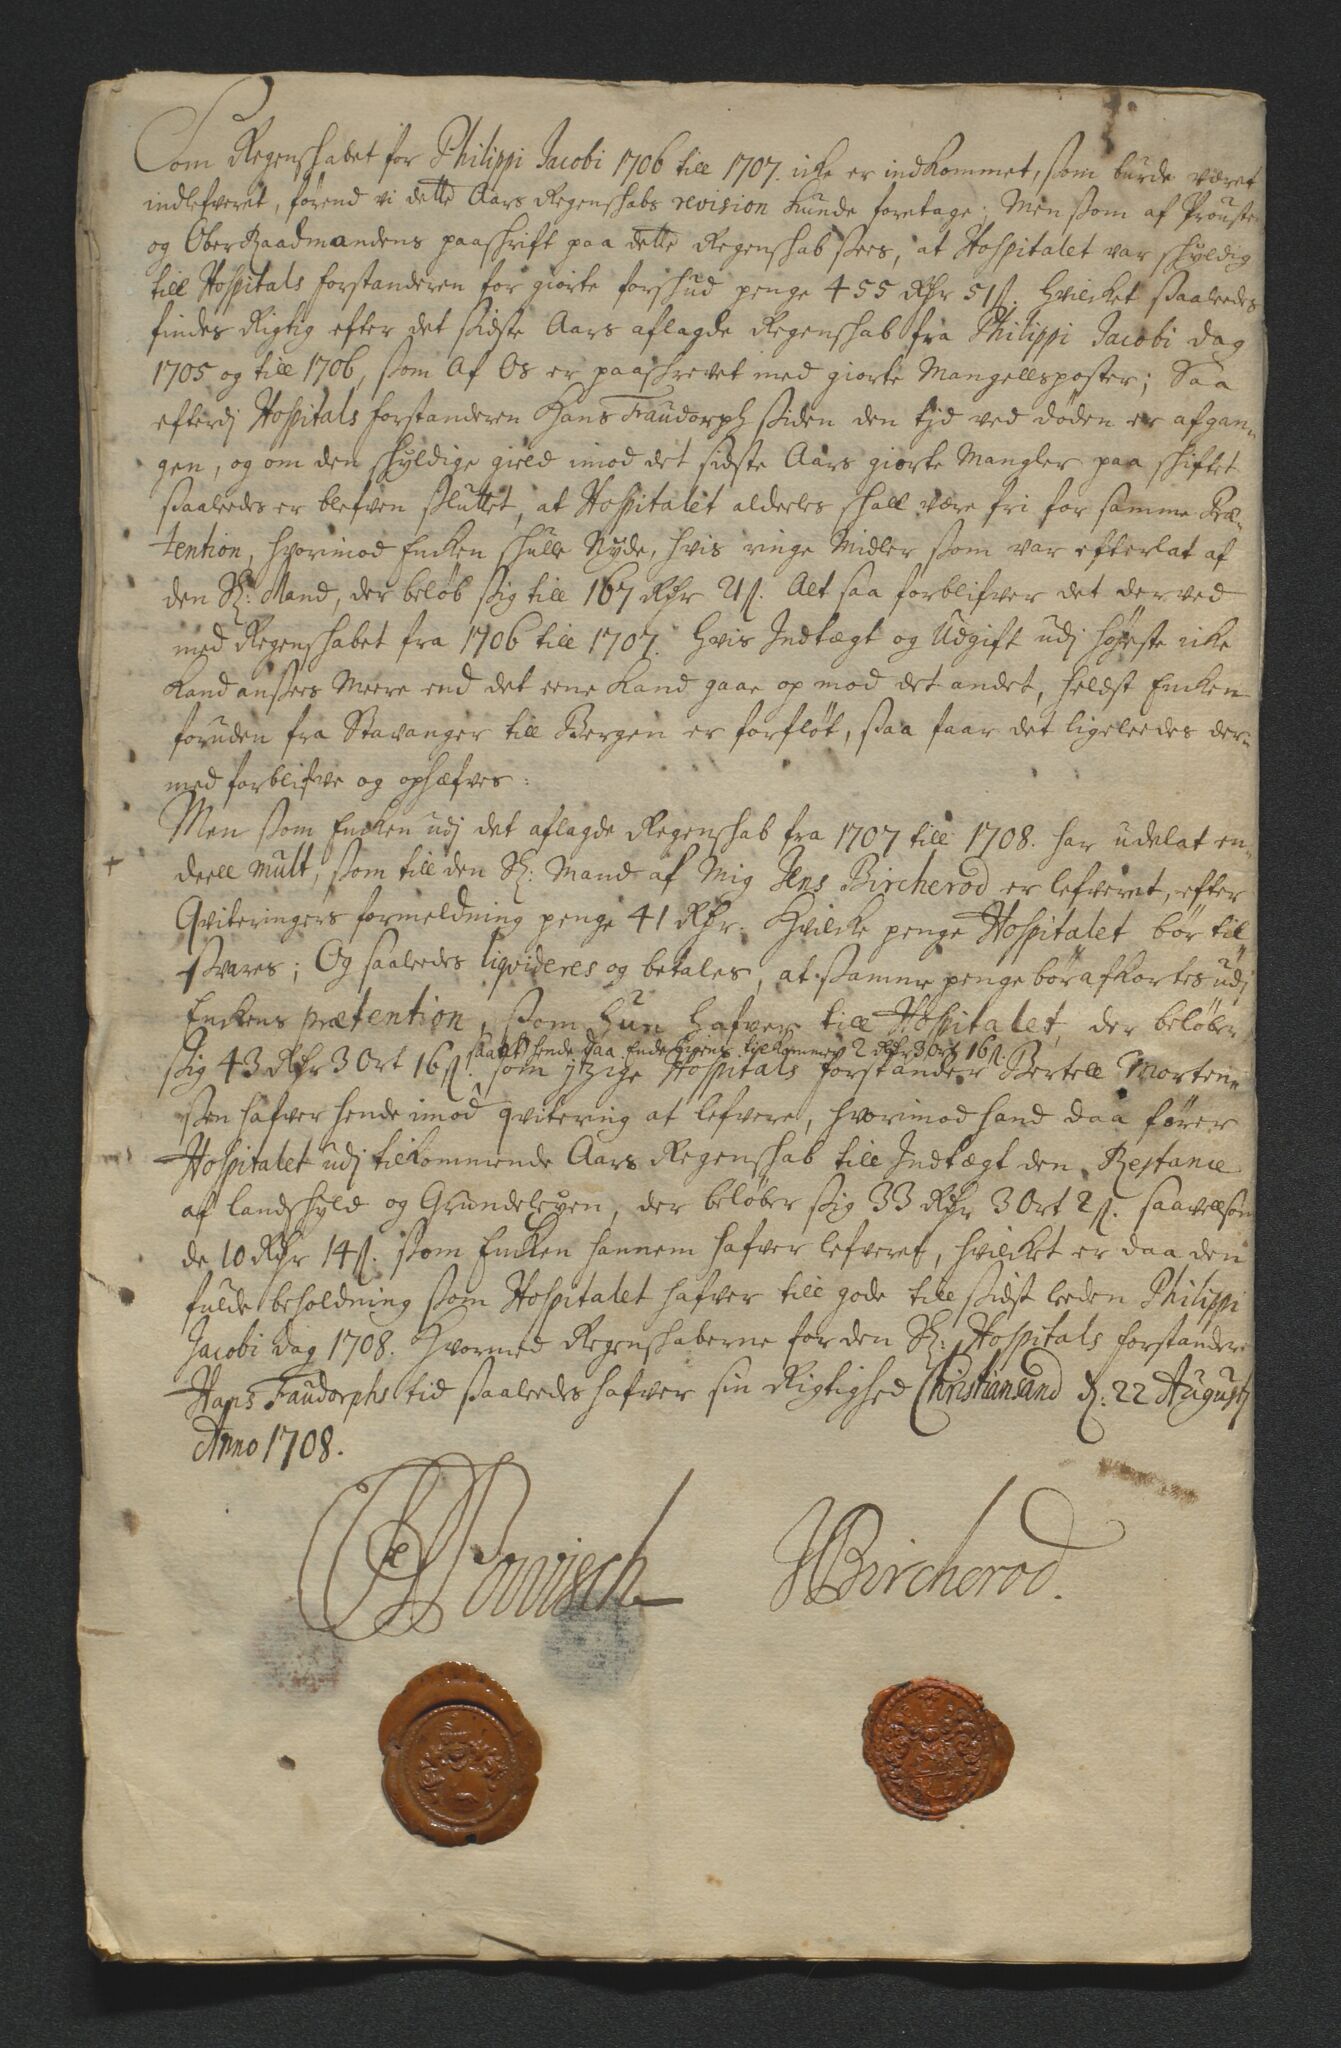 Som Regenskabet for Philippi Jacobi 1706 till 1707. icke er indkommet, som burde været
indlefveret, førend vi dette Aars Regenskabs revision kunde foretage; Men som af Prousten
og OberRaadmandens paaskrift paa dette Regenskab sees, at Hospitalet var skyldig
till Hospitals forstanderen for giorte forskud penge 455 Rdr 51 ß. hvilcket saaleedes
findes Rigtig efter det sidste Aars aflagde Regenskab fra Philippi Jacobi dag
1705 og till 1706, som af os er paaskrevet med giorte Mangellsposter; Saa
efterdj Hospitals forstanderen Hans Faudorph siden den tjd ved døden er afgan-
gen, og om den skyldige gield imod det sidste Aars giorte Mangler paa skiftet
saaleedes er blefven sluttet, at Hospitalet alderles skall være fri for samme Præ-
tention, hvorimod Encken skulle Nyde, hvis ringe Midler som var efterlat af
den Sl: Mand, der beløb sig till 167 Rdr 2 ß. Alt saa forblifver det derved
med Regenskabet fra 1706 till 1707. hvis Indtægt og Udgift udj højeste icke
kand ansees Meere end det eene kand gaae op mod det andet, heldst Encken
foruden fra Stavanger till Bergen er forfløt, saa faar det ligeleedes der-
med forblifve og ophæfves:
Men som Encken udj det aflagde Regenskab fra 1707 till 1708. har udelat en
deell mult, som till den Sl: Mand af Mig Jens Bircherod er lefveret, efter
Qviteringers formeldning penge 41 Rdr. hvilcke penge Hospitalet bør til
svares; Og saaleedes liqvideres og betales, at samme penge bør afkortes udj
Enckens prætention, som hun hafver till Hospitalet, der beløber
saa at hende daa Endeligens tilkommer 2 Rdr 3 Ort 16 ß.
sig 43 Rdr 3 Ort 16 ß. som jtzige Hospitals forstander Bertell Morten-
sen hafver hende imod qvitering at lefvere, hvorimod hand daa fører
Hospitalet udj tilkommende Aars Regenskab till Indtægt den Restance
af landskyld og Grundeleyen, der beløber sig 33 Rdr 3 Ort 2 ß. saavellsom
de 10 Rdr 14 ß. som Encken hannem hafver lefveret, hvilcket er daa den
fulde beholdning som Hospitalet hafver till gode till sidst leeden Philippi
Jacobi dag 1708. hvormed Regenskaberne for den Sl: Hospitals forstandere
Hans Faudorphs tid saaleedes hafver sin Rigtighed Christiansand d: 22 Augustj
Anno 1708.
Powisch JBircherod.